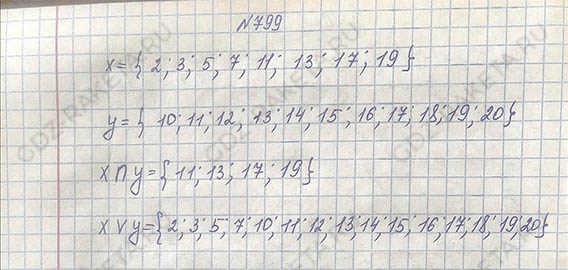 №799
X = { 2; 3; 5; 7; 11; 13; 17; 19 }
y = { 10; 11; 12; 13; 14; 15; 16; 17; 18; 19; 20 }
X ∩ y = { 11; 13; 17; 19 }
X ∨ y = { 2; 3; 5; 7; 10; 11; 12; 13; 14; 15; 16; 17; 18; 19; 20 }
GDZ-RAKETA.RU